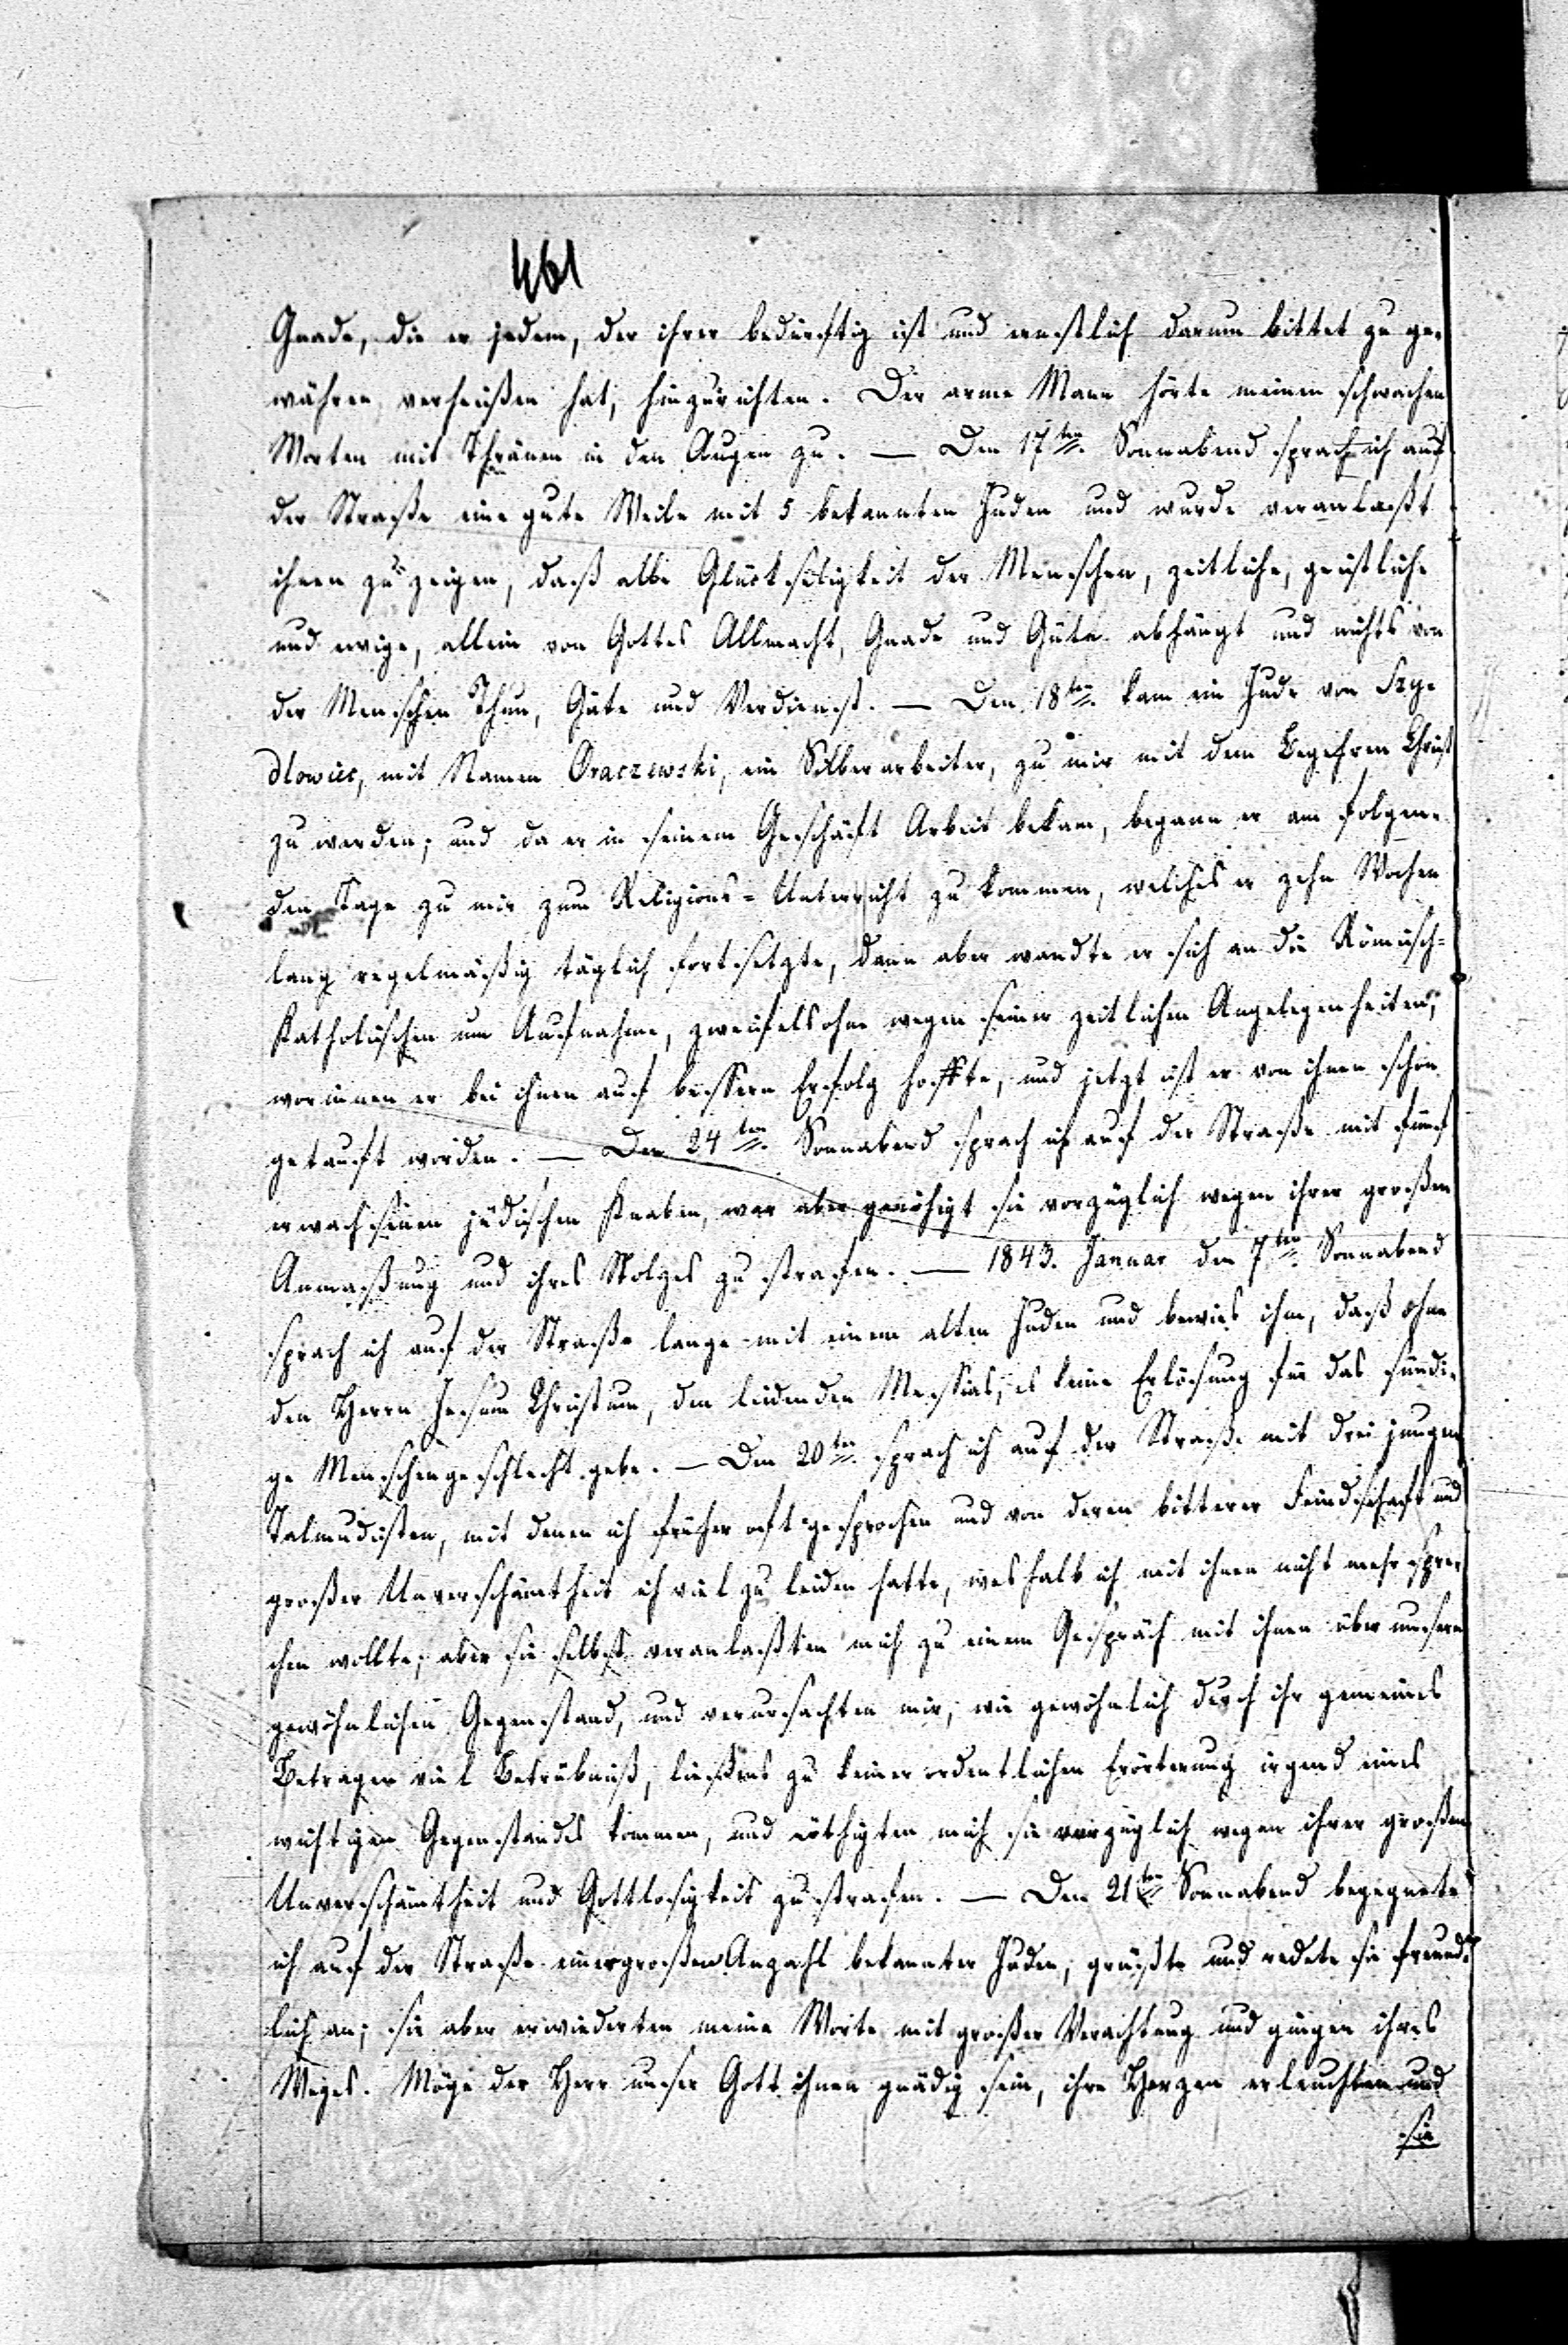 461
Gnade, die er jedem, der ihrer bedürftig ist und ernstlich darum bittet zu ge-
währen verheißen hat, hinzurichten. Der arme Mann hörte meinen schwachen
Worten mit Thränen in den Augen zu. — Den 17ten Sonnabend sprach ich auf
der Straße eine gute Weile mit 5 bekannten Juden und wurde veranlaßt
ihnen zu zeigen, daß alle Glückseligkeit der Menschen, zeitliche, geistliche
und ewige, allein von Gottes Allmacht, Gnade und Güte abhängt und nichts von
der Menschen Thun, Güte und Verdienst. — Den 18ten kam ein Jude von Szy-
dlowiec, mit Namen Oraczewski, ein Silberarbeiter, zu mir mit dem Begehren Christ
zu werden; und da er in seinem Geschäft Arbeit bekam, begann er am folgen-
den Tage zu mir zum Religions-Unterricht zu kommen, welches er zehn Wochen
lang regelmäßig täglich fortsetzte, dann aber wandte er sich an die Römisch-
Katholischen um Aufnahme, zweifelsohne wegen seiner zeitlichen Angelegenheiten,
worinnen er bei ihnen auf bessern Erfolg hoffte, und jetzt ist er von ihnen schon
getauft worden. — Den 24ten Sonnabend sprach ich auf der Straße mit fünf
erwachsenen jüdischen Knaben, war aber genöthigt sie vorzüglich wegen ihrer großen
Anmaßung und ihres Stolzes zu strafen. — 1843. Januar den 7ten Sonnabend
sprach ich auf der Straße lange mit einem alten Juden und bewies ihm, daß ohne
den Herrn Jesum Christum, den leidenden Messias, es keine Erlösung für das sündi-
ge Menschengeschlecht gebe. — Den 20ten sprach ich auf der Straße mit drei jungen
Talmudisten, mit denen ich früher oft gesprochen und von deren bitterer Feindschaft und
großer Unverschämtheit ich viel zu leiden hatte, weshalb ich mit ihnen nicht mehr spre-
chen wollte; aber sie selbst veranlaßten mich zu einem Gespräch mit ihnen über unsern
gewöhnlichen Gegenstand, und verursachten mir, wie gewöhnlich durch ihr gemeines
Betragen viel Betrübniß, ließens zu keiner ordentlichen Erörterung irgend eines
wichtigen Gegenstandes kommen, und nöthigten mich sie vorzüglich wegen ihrer großen
Unverschämtheit und Gottlosigkeit zu strafen. — Den 21ten Sonnabend begegnete
ich auf der Straße einer großen Anzahl bekannter Juden, grüßte und redete sie freund-
lich an; sie aber erwiederten meine Worte mit großer Verachtung und gingen ihres
Weges. Möge der Herr unser Gott ihnen gnädig sein, ihre Herzen erleuchten und
sie